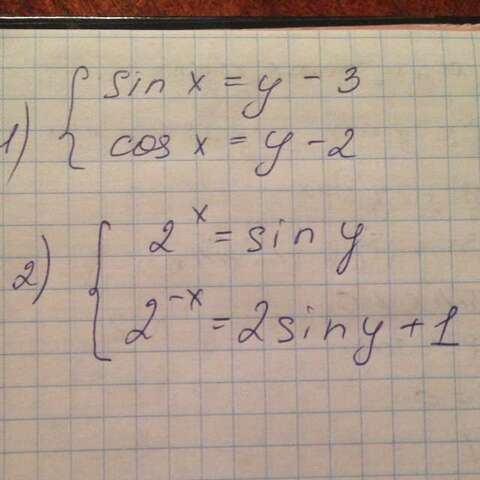 1) { sin x = y - 3
cos x = y - 2
2) { 2^x = sin y
2^-x = 2 sin y + 1